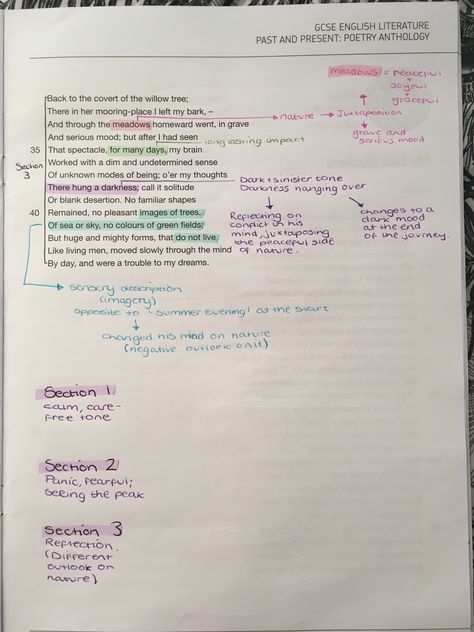 GCSE ENGLISH LITERATURE
PAST AND PRESENT: POETRY ANTHOLOGY
meadows = peaceful
+
joyful
+
graceful
Back to the covert of the willow tree;
There in her mooring-place I left my bark, –
nature → Juxtaposition
And through the meadows homeward went, in grave
grave and
serious mood
And serious mood; but after I had seen
long lasting impact
35 That spectacle, for many days, my brain
Section
3
Worked with a dim and undetermined sense
Of unknown modes of being; o'er my thoughts
There hung a darkness, call it solitude
Dark + sinister tone
Darkness hanging over
Or blank desertion. No familiar shapes
40 Remained, no pleasant images of trees,
Of sea or sky, no colours of green fields;
But huge and mighty forms, that do not live
Like living men, moved slowly through the mind
By day, and were a trouble to my dreams.
Reflecting on
conflict in his
mind, juxtaposing
the peaceful side
of nature.
changes to a
dark mood
at the end
of the journey.
sensory description
(imagery)
opposite to 'summer evening' at the start
changed his mind on nature
(negative outlook on it)
Section 1
calm, care-
free tone
Section 2
Panic, fearful;
seeing the peak
Section 3
Reflection.
(Different
outlook on
nature)